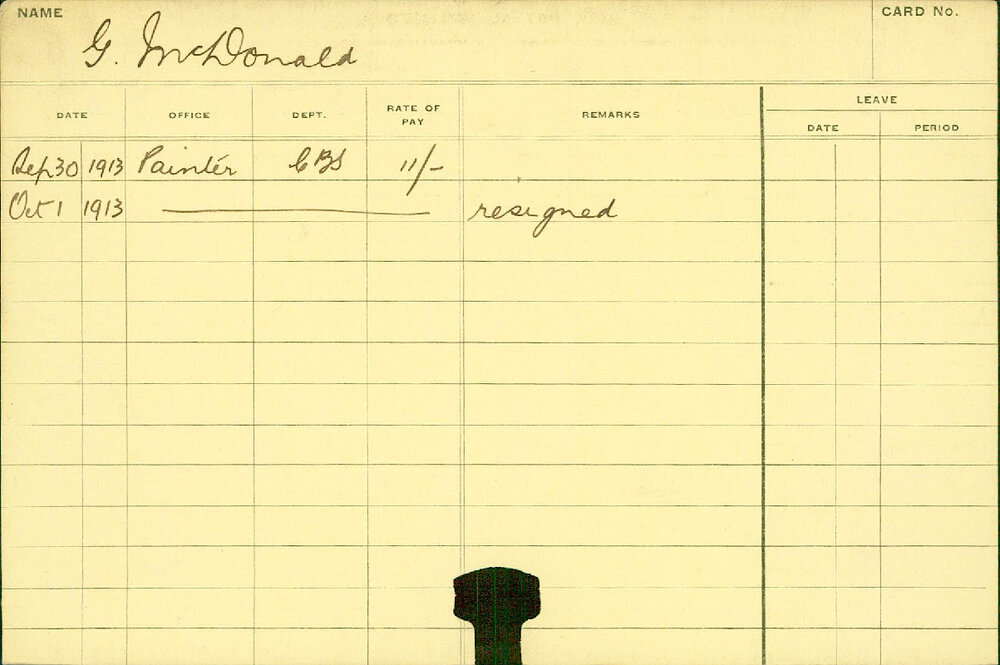 NAME
CARD No.
G. McDonald
DATE OFFICE DEPT. RATE OF PAY REMARKS LEAVE
DATE PERIOD
Sep 30 1913 Painter CBS 11/-
Oct 1 1913 resigned